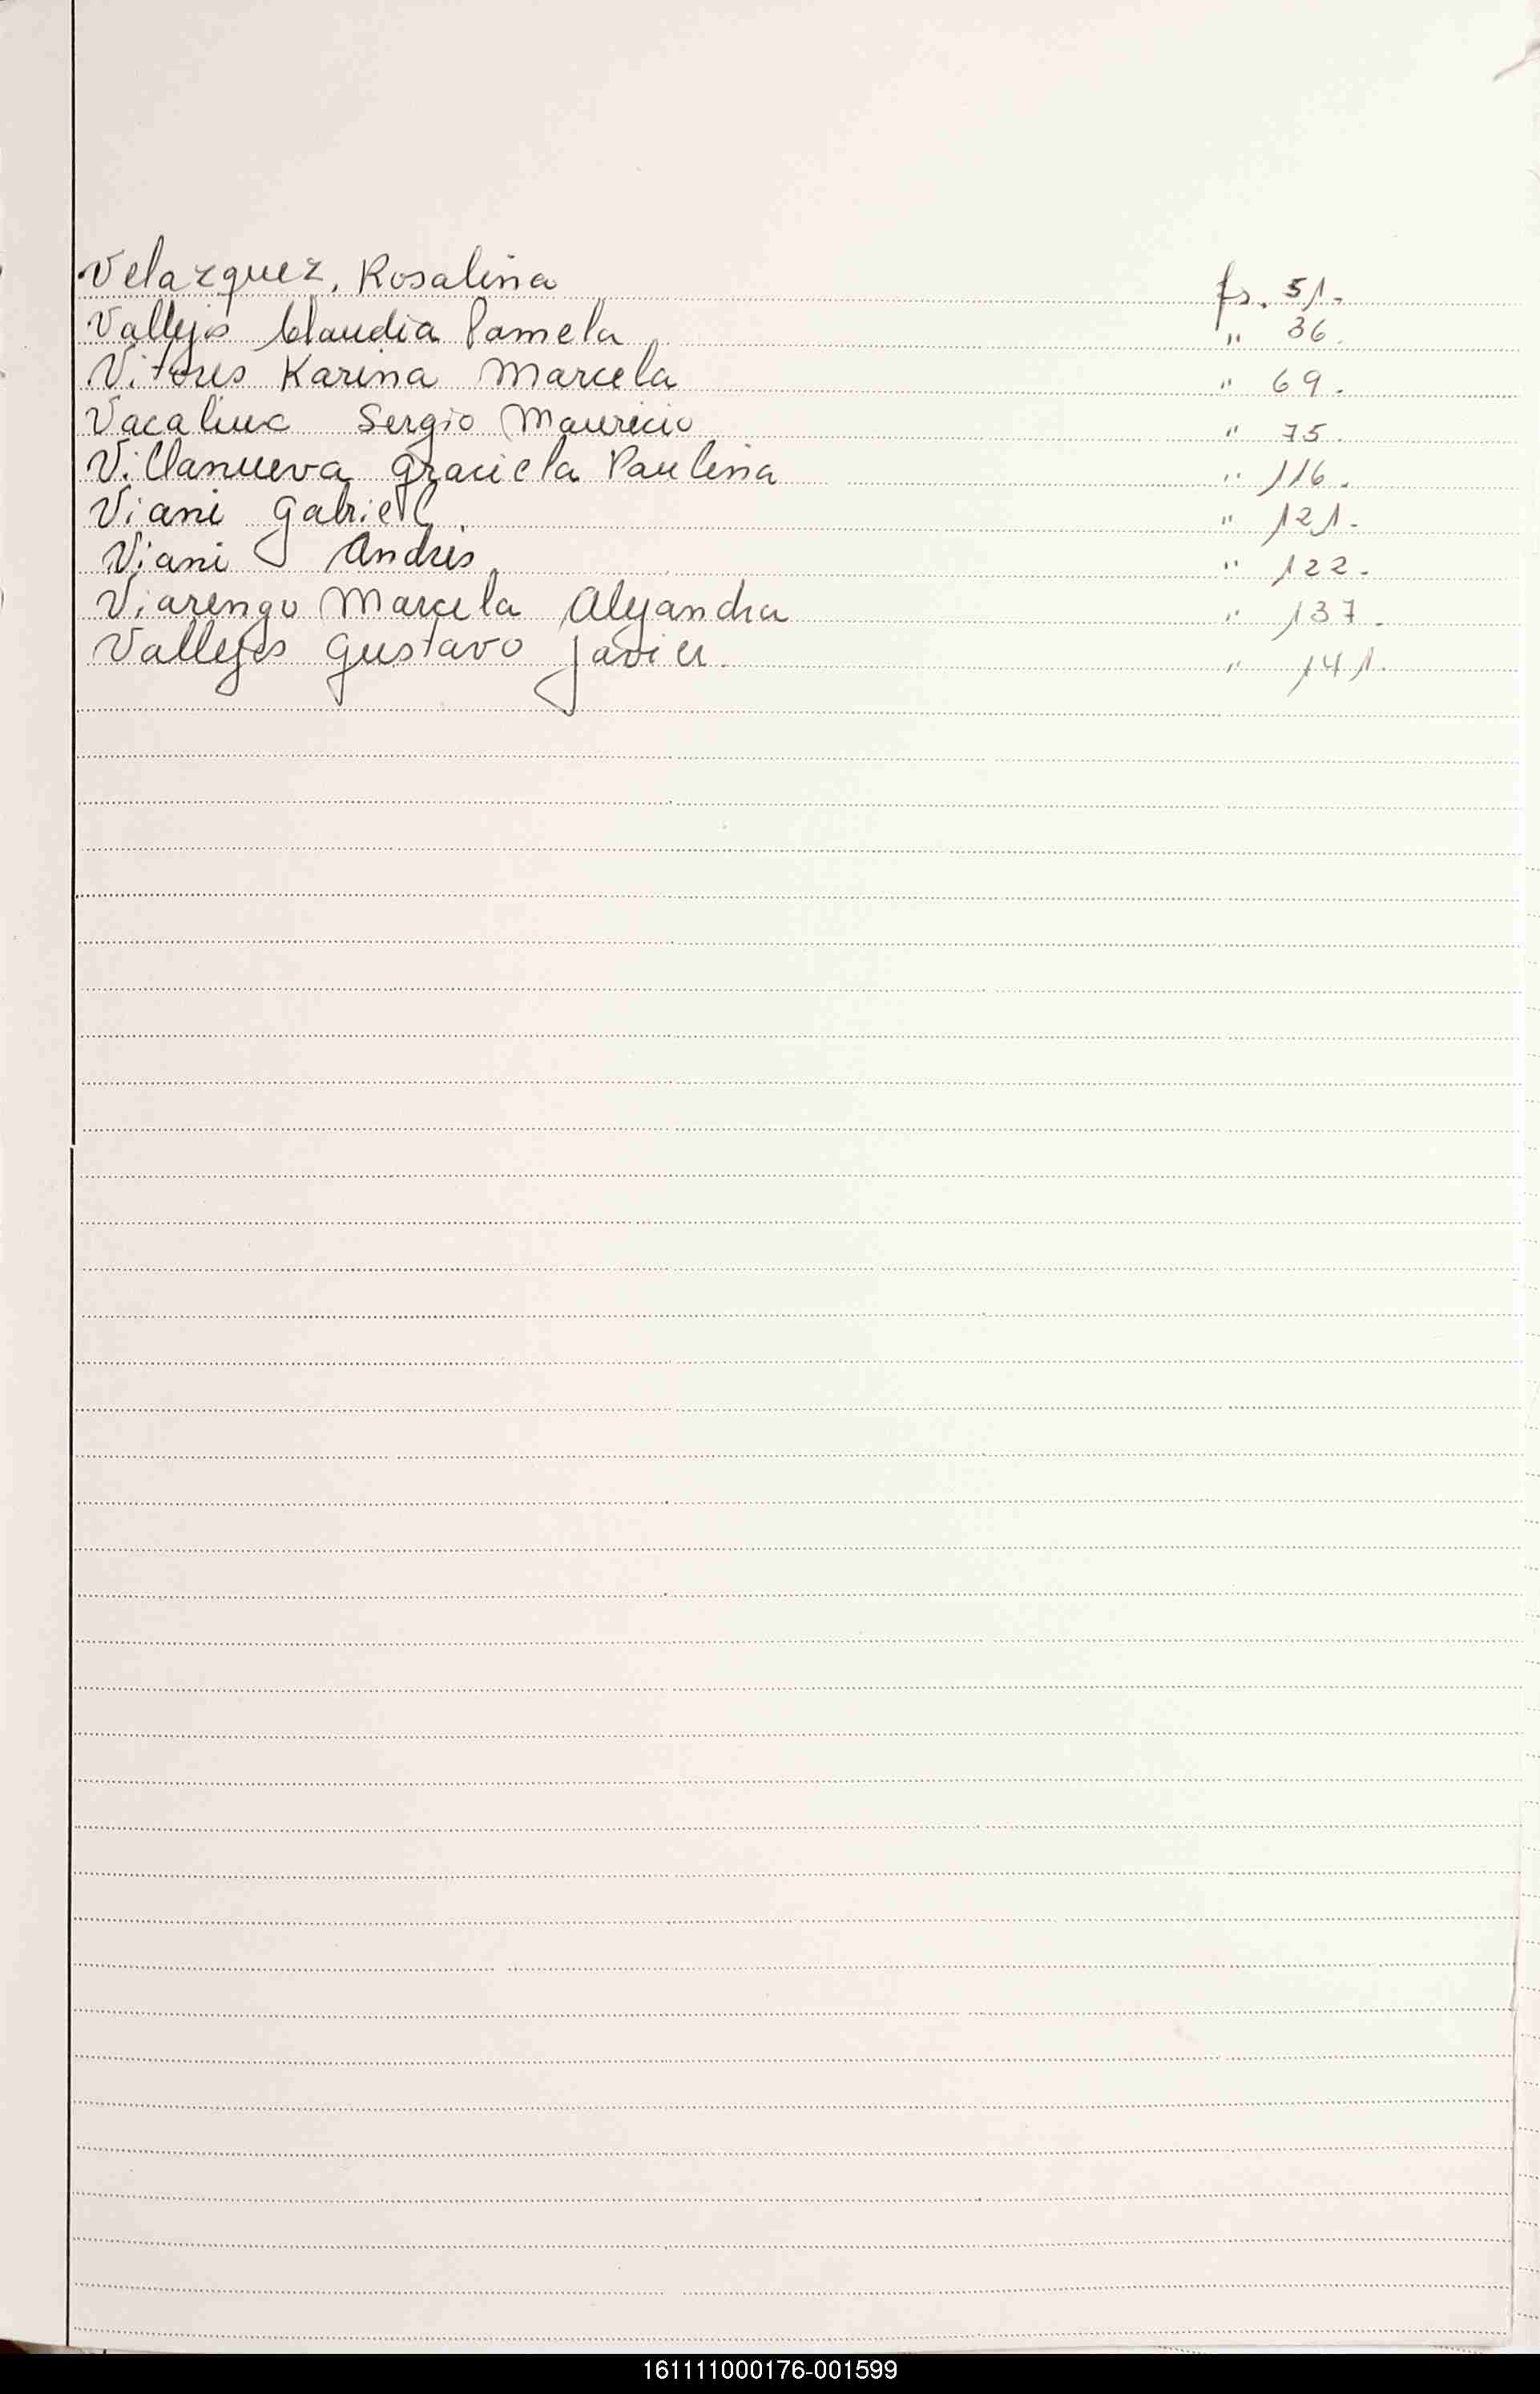 Velazquez, Rosalina fs. 51.
Vallejos Claudia Pamela " 36.
Vitores Karina Marcela " 69.
Sergio Mauricio " 75.
Villanueva Graciela Paulina " 116.
Viani Gabriel. " 121.
Viani Andres. " 122.
Viarengo Marcela Alejandra " 137.
Vallejos Gustavo Javier. " 141.
161111000176-001599